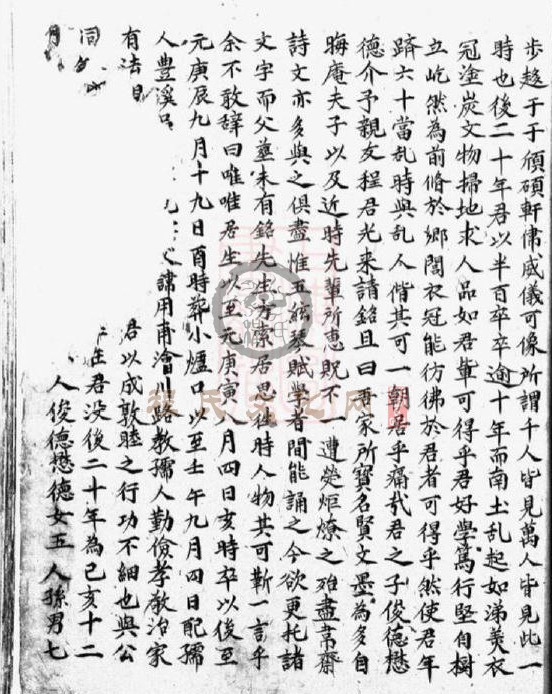 步趍于于頎碩軒㑋威儀可像所謂千人皆見萬人皆見此一
時也後二十年君以半百卒卒逾十年而南土乱起如涕羙衣
冠塗炭文物掃地求人品如君軰可得乎君好學篤行堅自樹
立屹然為前脩於鄉閭衣冠能仿佛於君者可得乎然使君年
躋六十當乱時與乱人偕其可一朝居乎痛㢤君之子俊德懋
德介予親友程君光来請銘且曰吾家所寳名賢文墨為多自
晦庵夫子以及近時先軰所惠既不一遭熒炬燎之殆盡帟齋
詩文亦多與之俱盡惟五絃琴賦學者間能誦之今欲更托諸
文字而父墓未有銘先生方索居思徃時人物其可靳一言乎
余不敢辞曰唯唯君生以至元庚寅八月四日亥時卒以後至
元庚辰九月十九日酉時葬小爐口以至壬午九月四日配孺
人豊溪 諱用甫澮川路教孺人勤儉孝敬治家
有法 君以成敦睦之行功不細也與公
同 在君没後二十年為己亥十二
月 人俊德懋德女五人孫男七